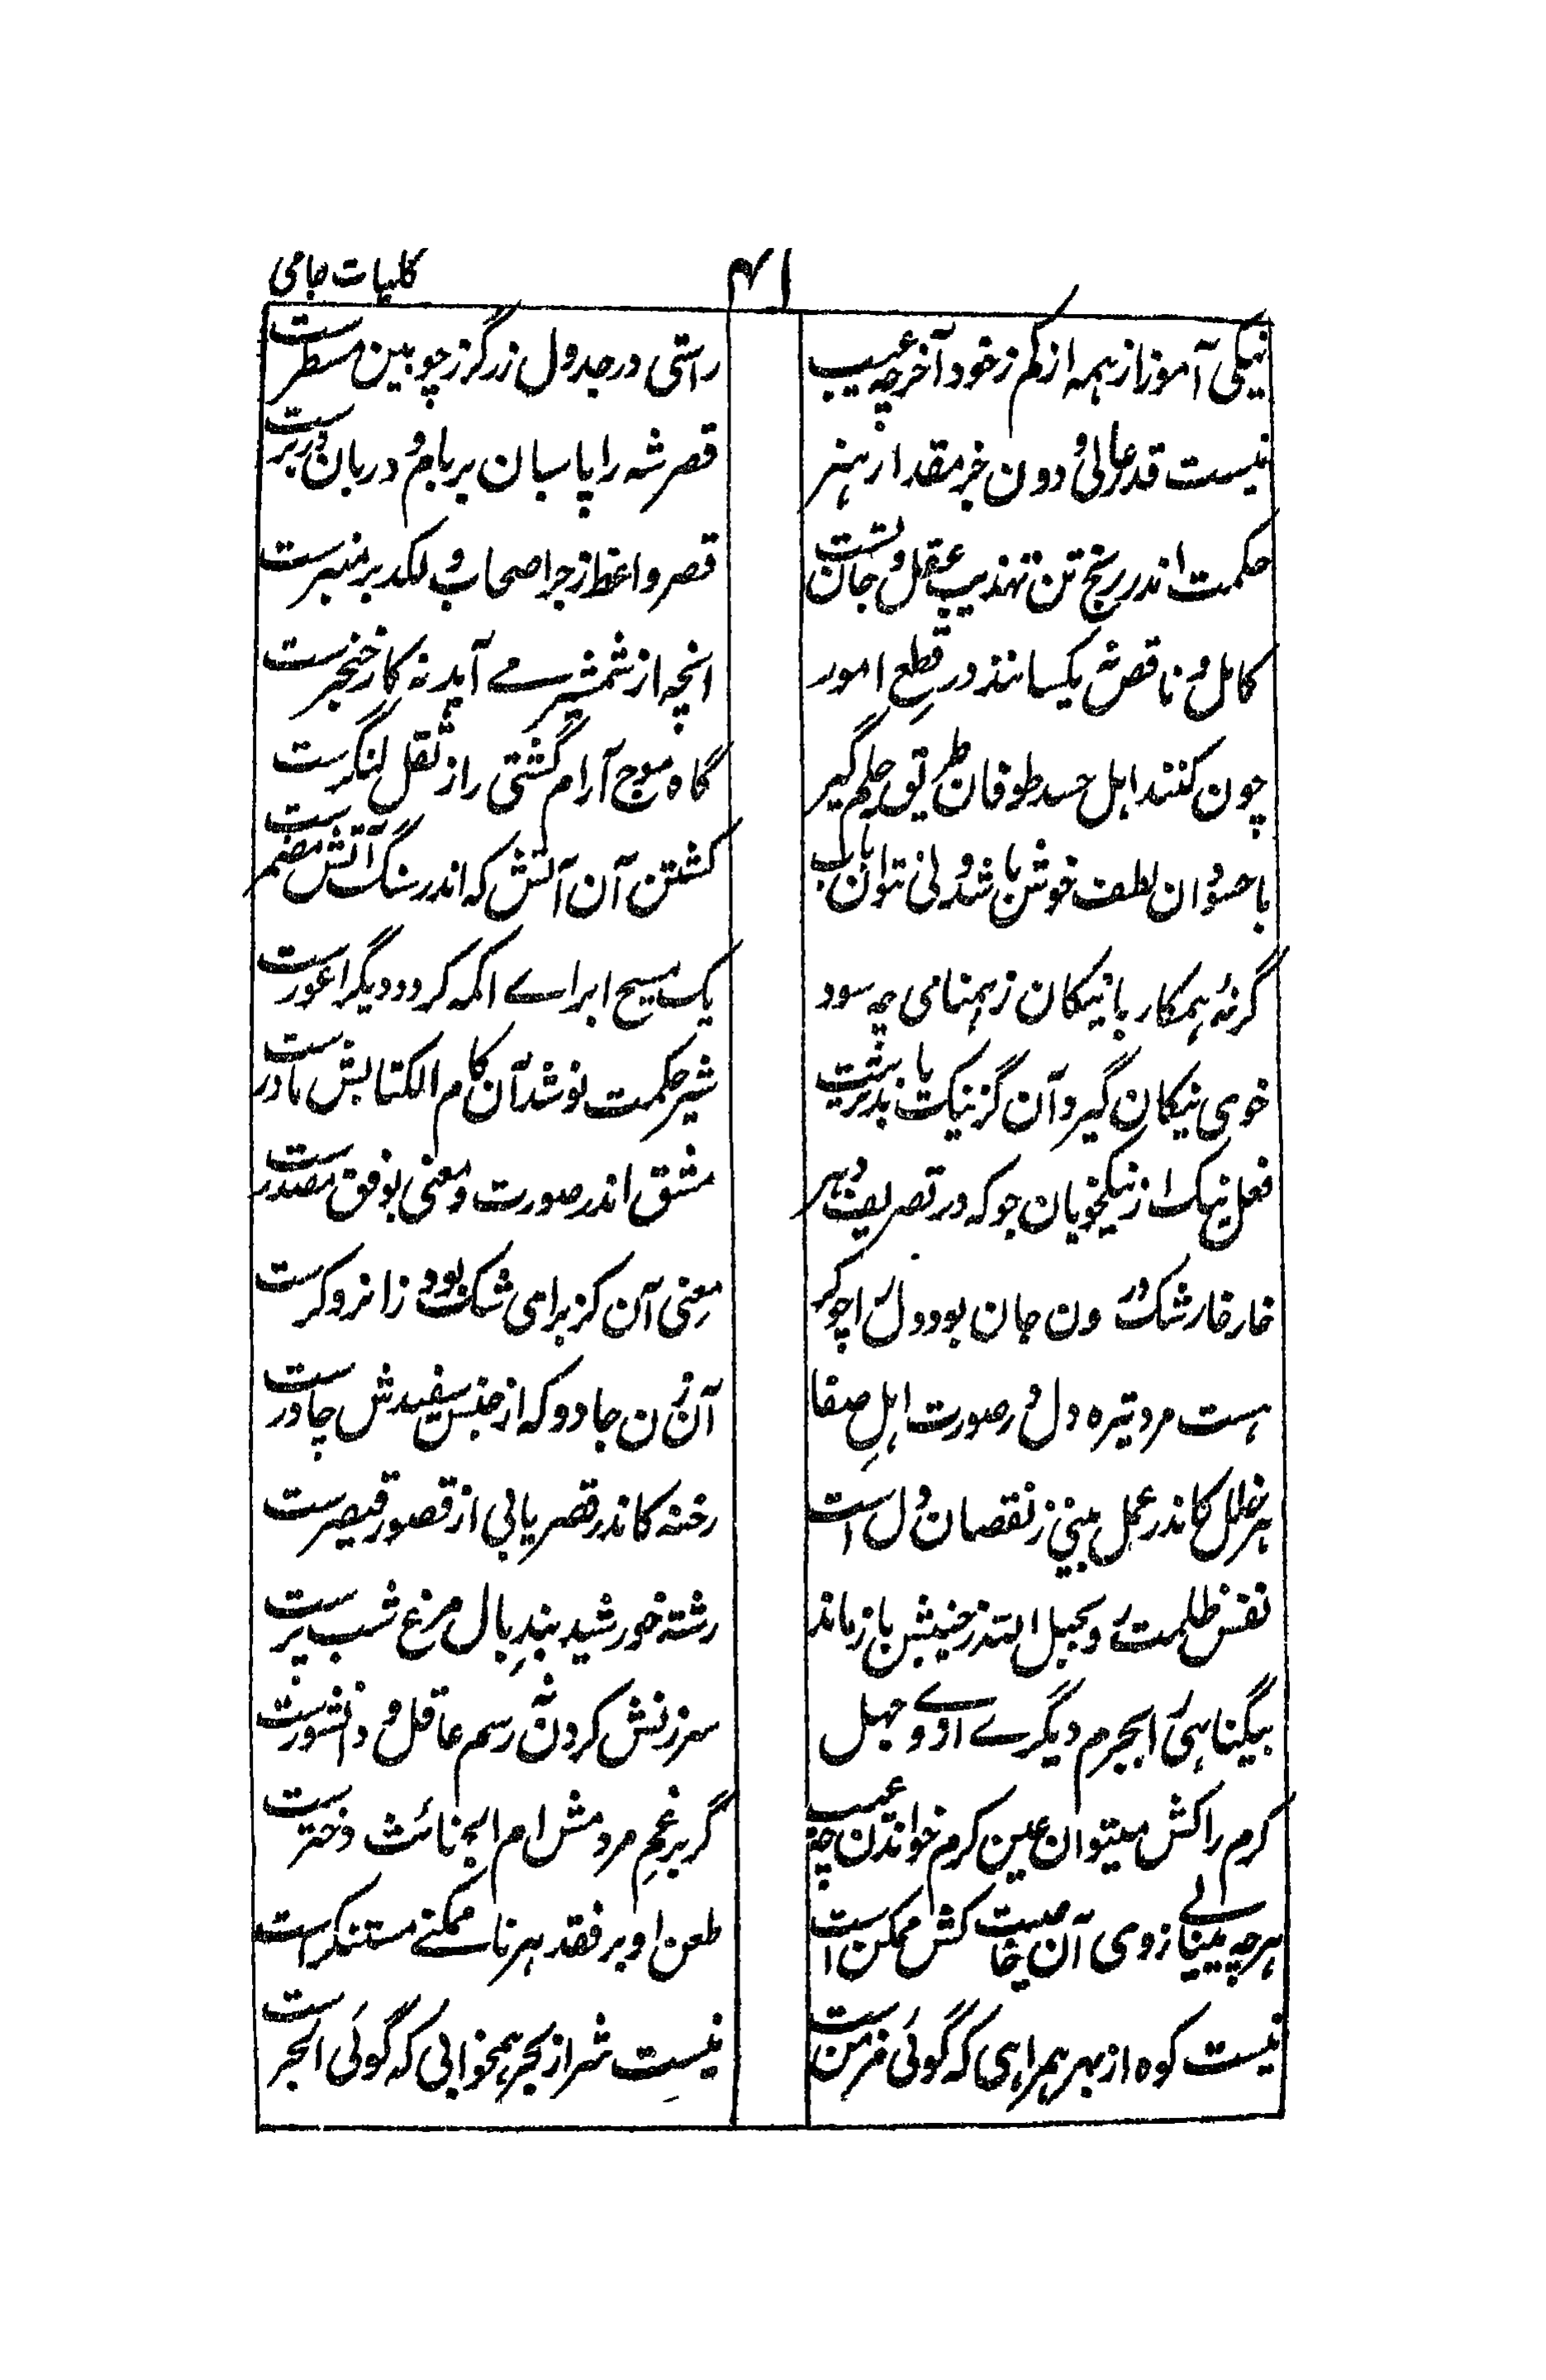 کلیات جامی
۴۱
نیکی آموز از همه از کم ز خود آخر چه عیب
راستی در جدول زر گر ز چوبین مسطرست
نیست قدر عالی و دون خبر مقدار هنر
قصر شه را پاسبان بر بام و دربان بر درست
حکمت اندر رنج تن تهذیب عقل و جان تست
قصر واعظ زجر اصحاب و لکد بر منبرست
کامل و ناقص نه یکسانند در قطع امور
انچه از شمشیر می آید نه کار خنجرست
چون کنند اهل حسد طوفان طریق حلم گیر
گاه موج آرام کشتی را ز ثقل لنگرست
با حسودان لطف خوش باشد ولی نتوان باب
کشتن آن آتش که اندر سنگ آتش مضمرست
گر نه همکار با نیکان ز همنامی چه سود
یک مسیح ابرای اکمه کرد و دیگر اعورست
خوی نیکان گیر و آن گز نیک یا بد تربیت
شیر حکمت نوشد آن کام الکتابش مادرست
فعل نیک از نیکخویان جو که در تصریف دهر
مشتق اندر صورت و معنی بوفق مصدرست
خار خار شک درون جان بود دل را چو کر
معنی آن کز برای شک بود زانرو کرست
هست مرد تیره دل در صورت اهل صفا
آن زن جادو که از جنس سفیدش چادرست
هر خلل کاندر عمل بینی ز نقصان دل است
رخنه کاندر قصر یابی از قصور قیصرست
نفس ظلمت رو بحبل الله ز جنبش باز ماند
رشته خورشید بند بال مرغ شب پرست
بیگناهی را بجرم دیگری از روی جهل
سرزنش کردن نه رسم عاقل و دانشورست
کرم را کش میتوان عین کرم خواندن چه عیب
گر بزعم مردمش ام الجنائث دخترست
هر چه بینی از وی آن خاصیت کش ممکن است
طعن او بر فقد هر ناممکنی مستنکرست
نیست کوه از بهر همراهی که گوئی فرمن است
نیست شر از بحر همخوابی که گوئی ابحرست